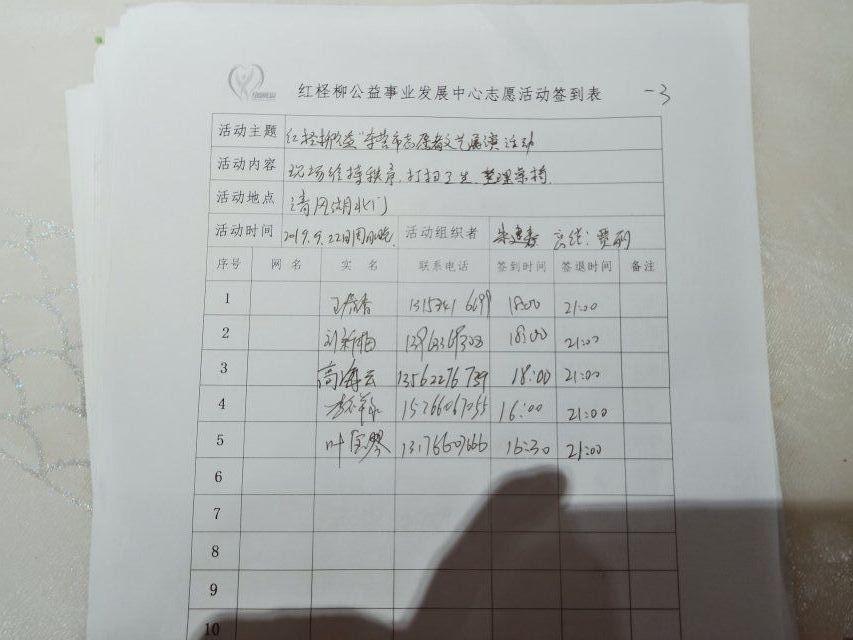 红柽柳公益事业发展中心志愿活动签到表 -3
活动主题 红柽柳公益"东营市志愿者文艺展演活动
活动内容 现场维持秩序.打扫卫生.整理桌椅.
活动地点 清风湖北门
活动时间 2019.9.22日周日晚. 活动组织者
序号 网名 实名 联系电话 签到时间 签退时间 备注
1 18:00 21:00
2 刘新梅 18:00 21:00
3 高海云 13562276739 18:00 21:00
4 15266067055 16:00 21:00
5 叶 13176607666 16:30 21:00
6
7
8
9
10